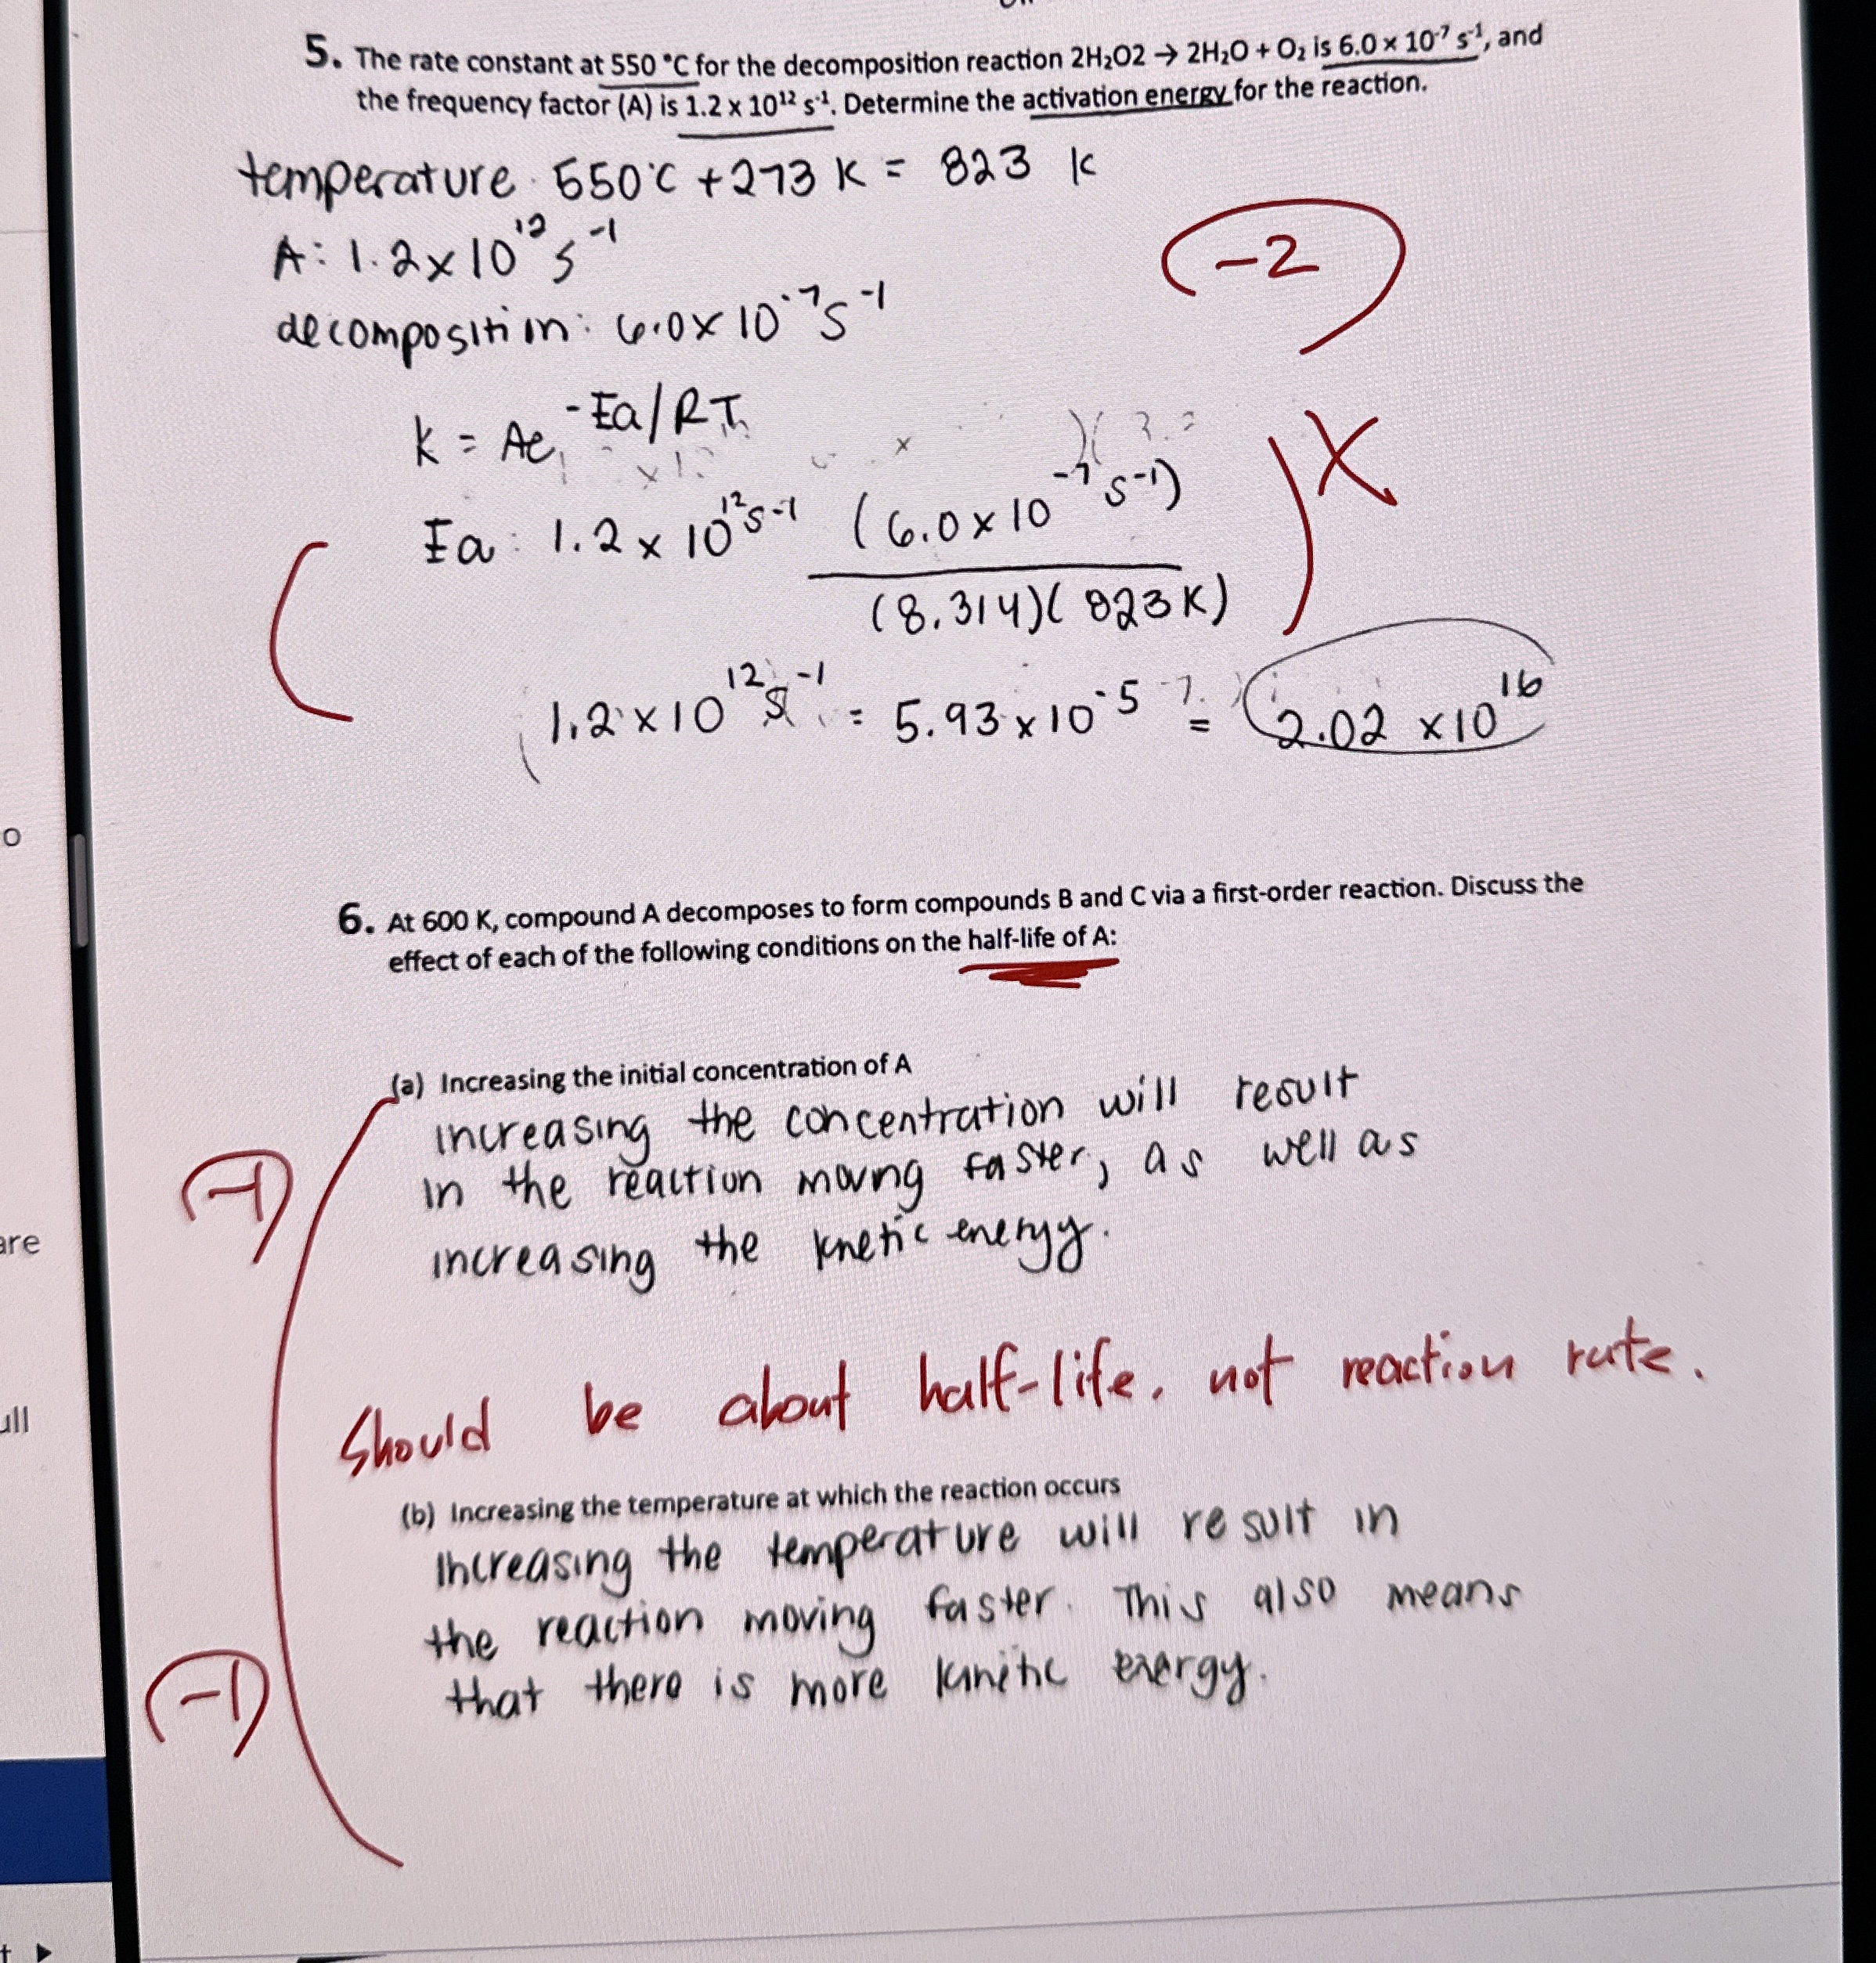 5. The rate constant at 550 °C for the decomposition reaction 2H₂O2 → 2H₂O + O₂ is 6.0 x 10⁻⁷ s⁻¹, and
the frequency factor (A) is 1.2 x 10¹² s⁻¹. Determine the activation energy for the reaction.
temperature 550°C + 273 K = 823 K
A: 1.2x10¹² s⁻¹
-2
decomposition: 6.0x10⁻⁷ s⁻¹
k = Ae^-Ea/RT
X
Ea: 1.2 x 10¹² s⁻¹ (6.0 x 10⁻⁷ s⁻¹)
(8.314)(823K)
1.2 x 10¹² s⁻¹ = 5.93 x 10⁻⁵ = 2.02 x10¹⁶
o
6. At 600 K, compound A decomposes to form compounds B and C via a first-order reaction. Discuss the
effect of each of the following conditions on the half-life of A:
(a) Increasing the initial concentration of A
increasing the concentration will result
-1
in the reaction moving faster, as well as
are
increasing the knetic energy.
ull
Should be about half-life, not reaction rate.
(b) Increasing the temperature at which the reaction occurs
increasing the temperature will result in
the reaction moving faster. This also means
-1
that there is more kinetic energy.
t